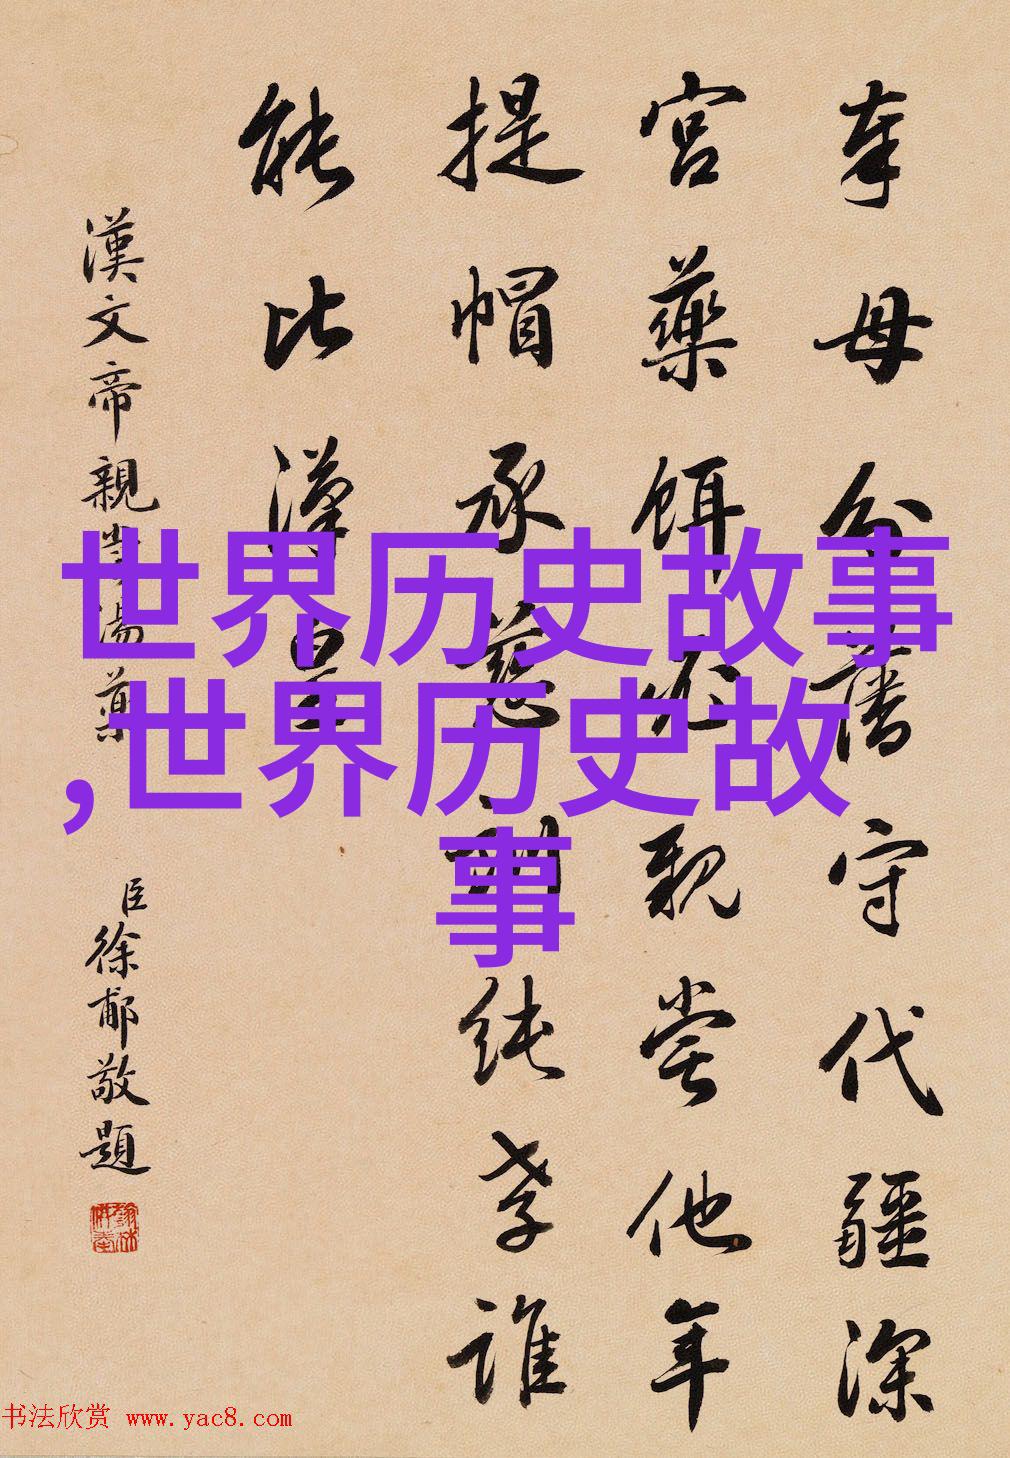 奉母分藩守代疆深
宮藥餌必親嘗他年
提帽承慈訓純孝誰
能比漢皇
漢文帝親嘗湯藥
臣徐郙敬題
世界历史故事
,世界历史故
事
书法欣赏 www.yac8.com